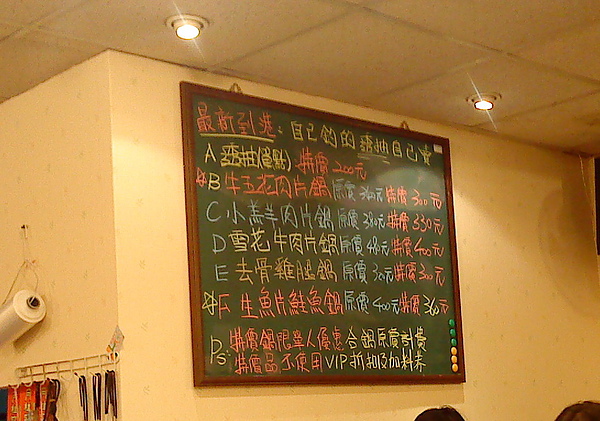 最新到港：自己釣的透抽自己賣
A 透抽(單點) 特價 200元
B 牛五花肉片鍋 原價 360元 特價 300元
C 小羔羊肉片鍋 原價 380元 特價 330元
D 雪花牛肉片鍋 原價 480元 特價 400元
E 去骨雞腿鍋 原價 320元 特價 300元
F 生魚片鮭魚鍋 原價 400元 特價 360元
Ps: 特價鍋限單人優惠合鍋原價計費
特價品不使用VIP折扣及加料券